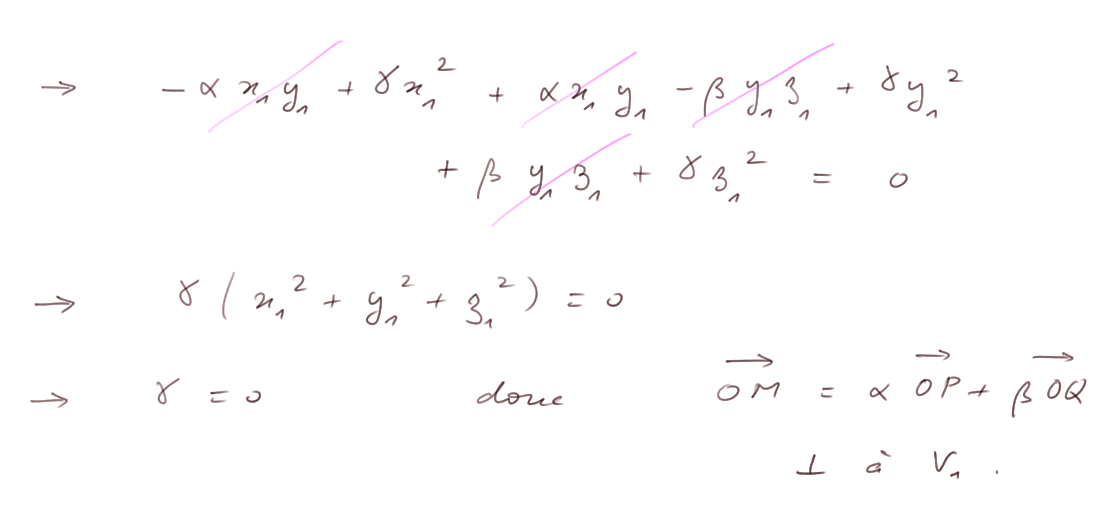 → - α x₁ y₁ + γ x₁² + α x₁ y₁ - β y₁ z₁ + γ y₁²
+ β y₁ z₁ + γ z₁² = 0
→ γ ( x₁² + y₁² + z₁² ) = 0
→ γ = 0 donc OM⃗ = α OP⃗ + β OQ⃗
⊥ à V₁ .